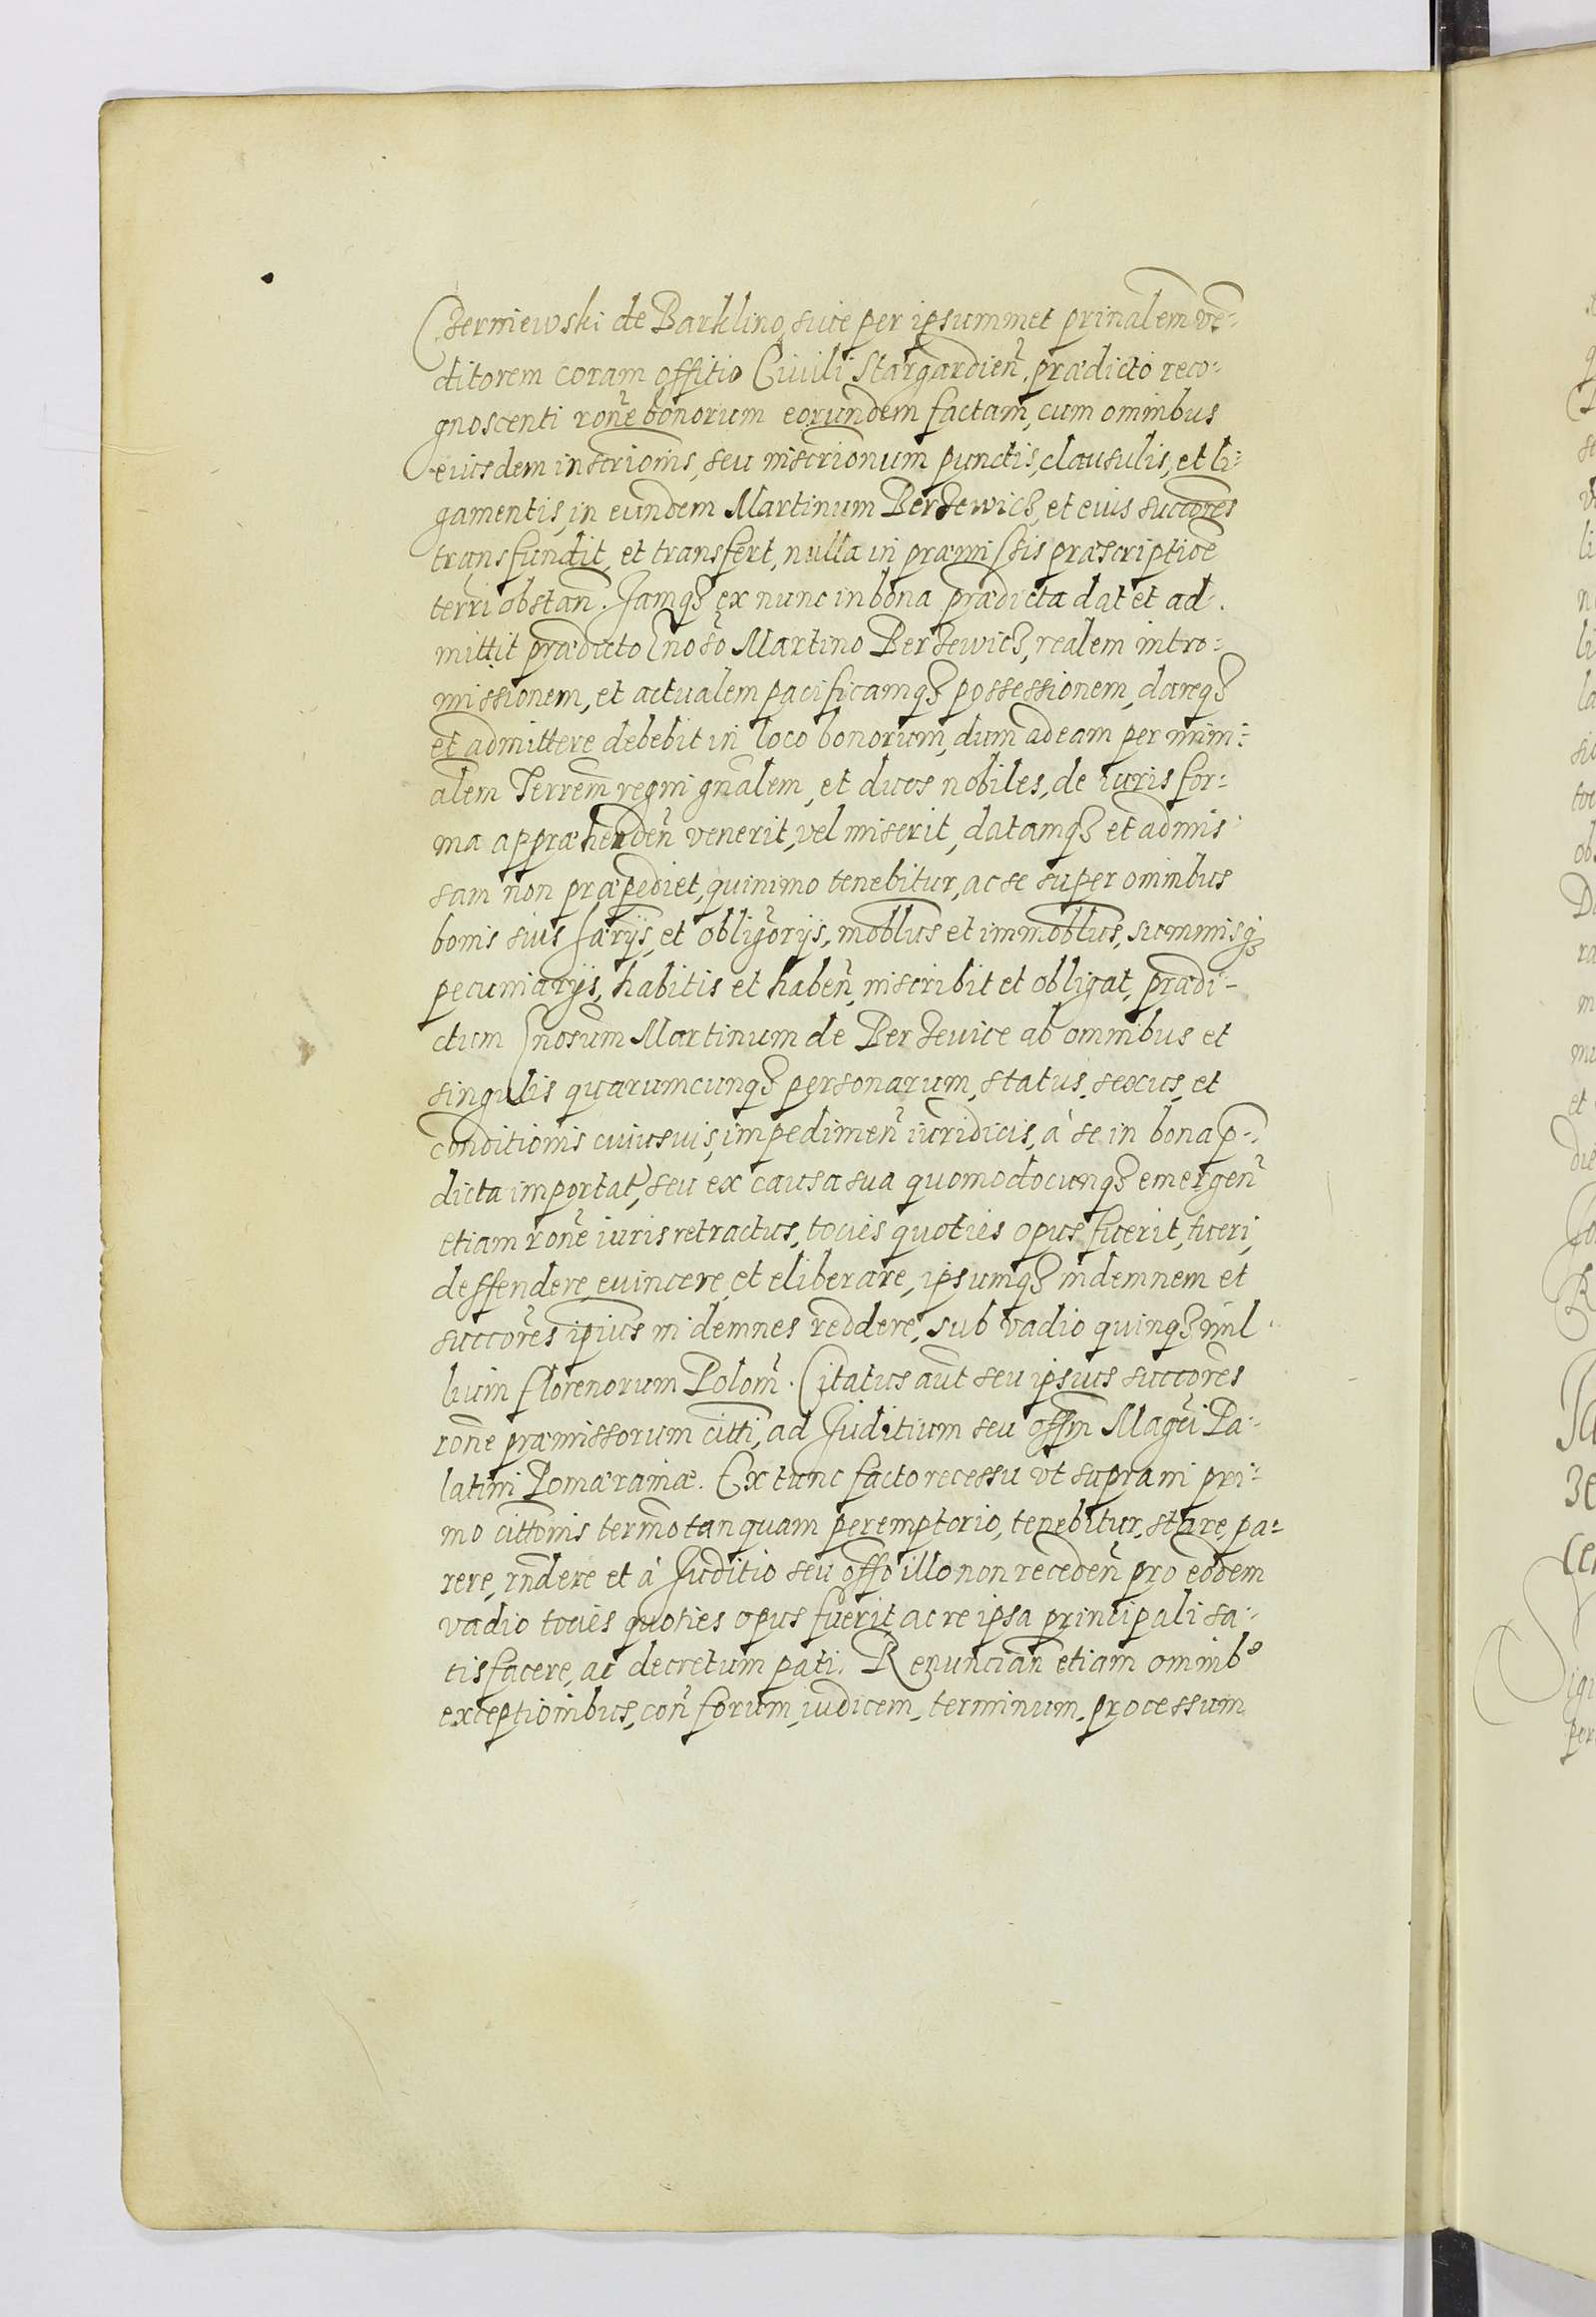 Czerniewski de Barklino, siue per ipsummet prinalem vē-
ditorem coram offitio Ciuili Stargardien̄. prædicto reco-
gnoscenti rōne bonorum eorundem factam, cum omnibus
eiusdem inscrīonis, seu inscrīonum punctis, clausulis, et li-
gamentis, in eundem Martinum Berzewicz, et eius succōres
transfundit, et transfert, nulla in præmissis præscriptiōe
terrī obstan̄. Jamqȝ ex nunc in bona prædicta dat et ad-
mittit prædicto Gnoso Martino Berzewicz, realem intro-
missionem, et actualem pacificamqȝ possessionem, dareqȝ
et admittere debebit in loco bonorum, dum ad eam per mini-
alem Terrem̄ regni gnālem, et duos nobiles, de iuris for-
ma appræhenden̄ venerit, vel miserit, datamqȝ et admis-
sam non præpediet, quinimo tenebitur, ac se super omnibus
bonis suis hærijs, et obligorijs, moblibus et immoblibus, summisqȝ
pecuniarijs, habitis et haben̄ inscribit et obligat, prædi-
ctum Gnosum Martinum de Berzeuice ab omnibus et
singulis quarumcunqȝ personarum, status, sexus, et
conditionis cuiusuis, impedimen̄ iuridicis, à se in bona p̄-
dicta importat̄, seu ex causa sua quomodocunqȝ emergen̄
etiam rōne iuris retractus, toties quoties opus fuerit, tueri,
deffendere, euincere, et eliberare, ipsumqȝ indemnem et
succōres ipius indemnes reddere, sub vadio quinqȝ mil-
lium florenorum Polon̄. Citatus aūt seu ipsius succōres
rōne præmissorum citti, ad Juditium seu offm̄ Magci Pa-
latini Pomæraniæ. Ex tunc facto recessu vt supra in pri-
mo cittonis termo tanquam peremptorio, tenebitur, stare, pa-
rere, rndere et à Juditio seu offo illo non receden̄ pro eodem
vadio toties quoties opus fuerit ac re ipsa principali sa-
tisfacere, ac decretum pati. Renuncian̄ etiam omnibꝰ
exceptionibus, con̄ forum, iudicem, terminum, processum